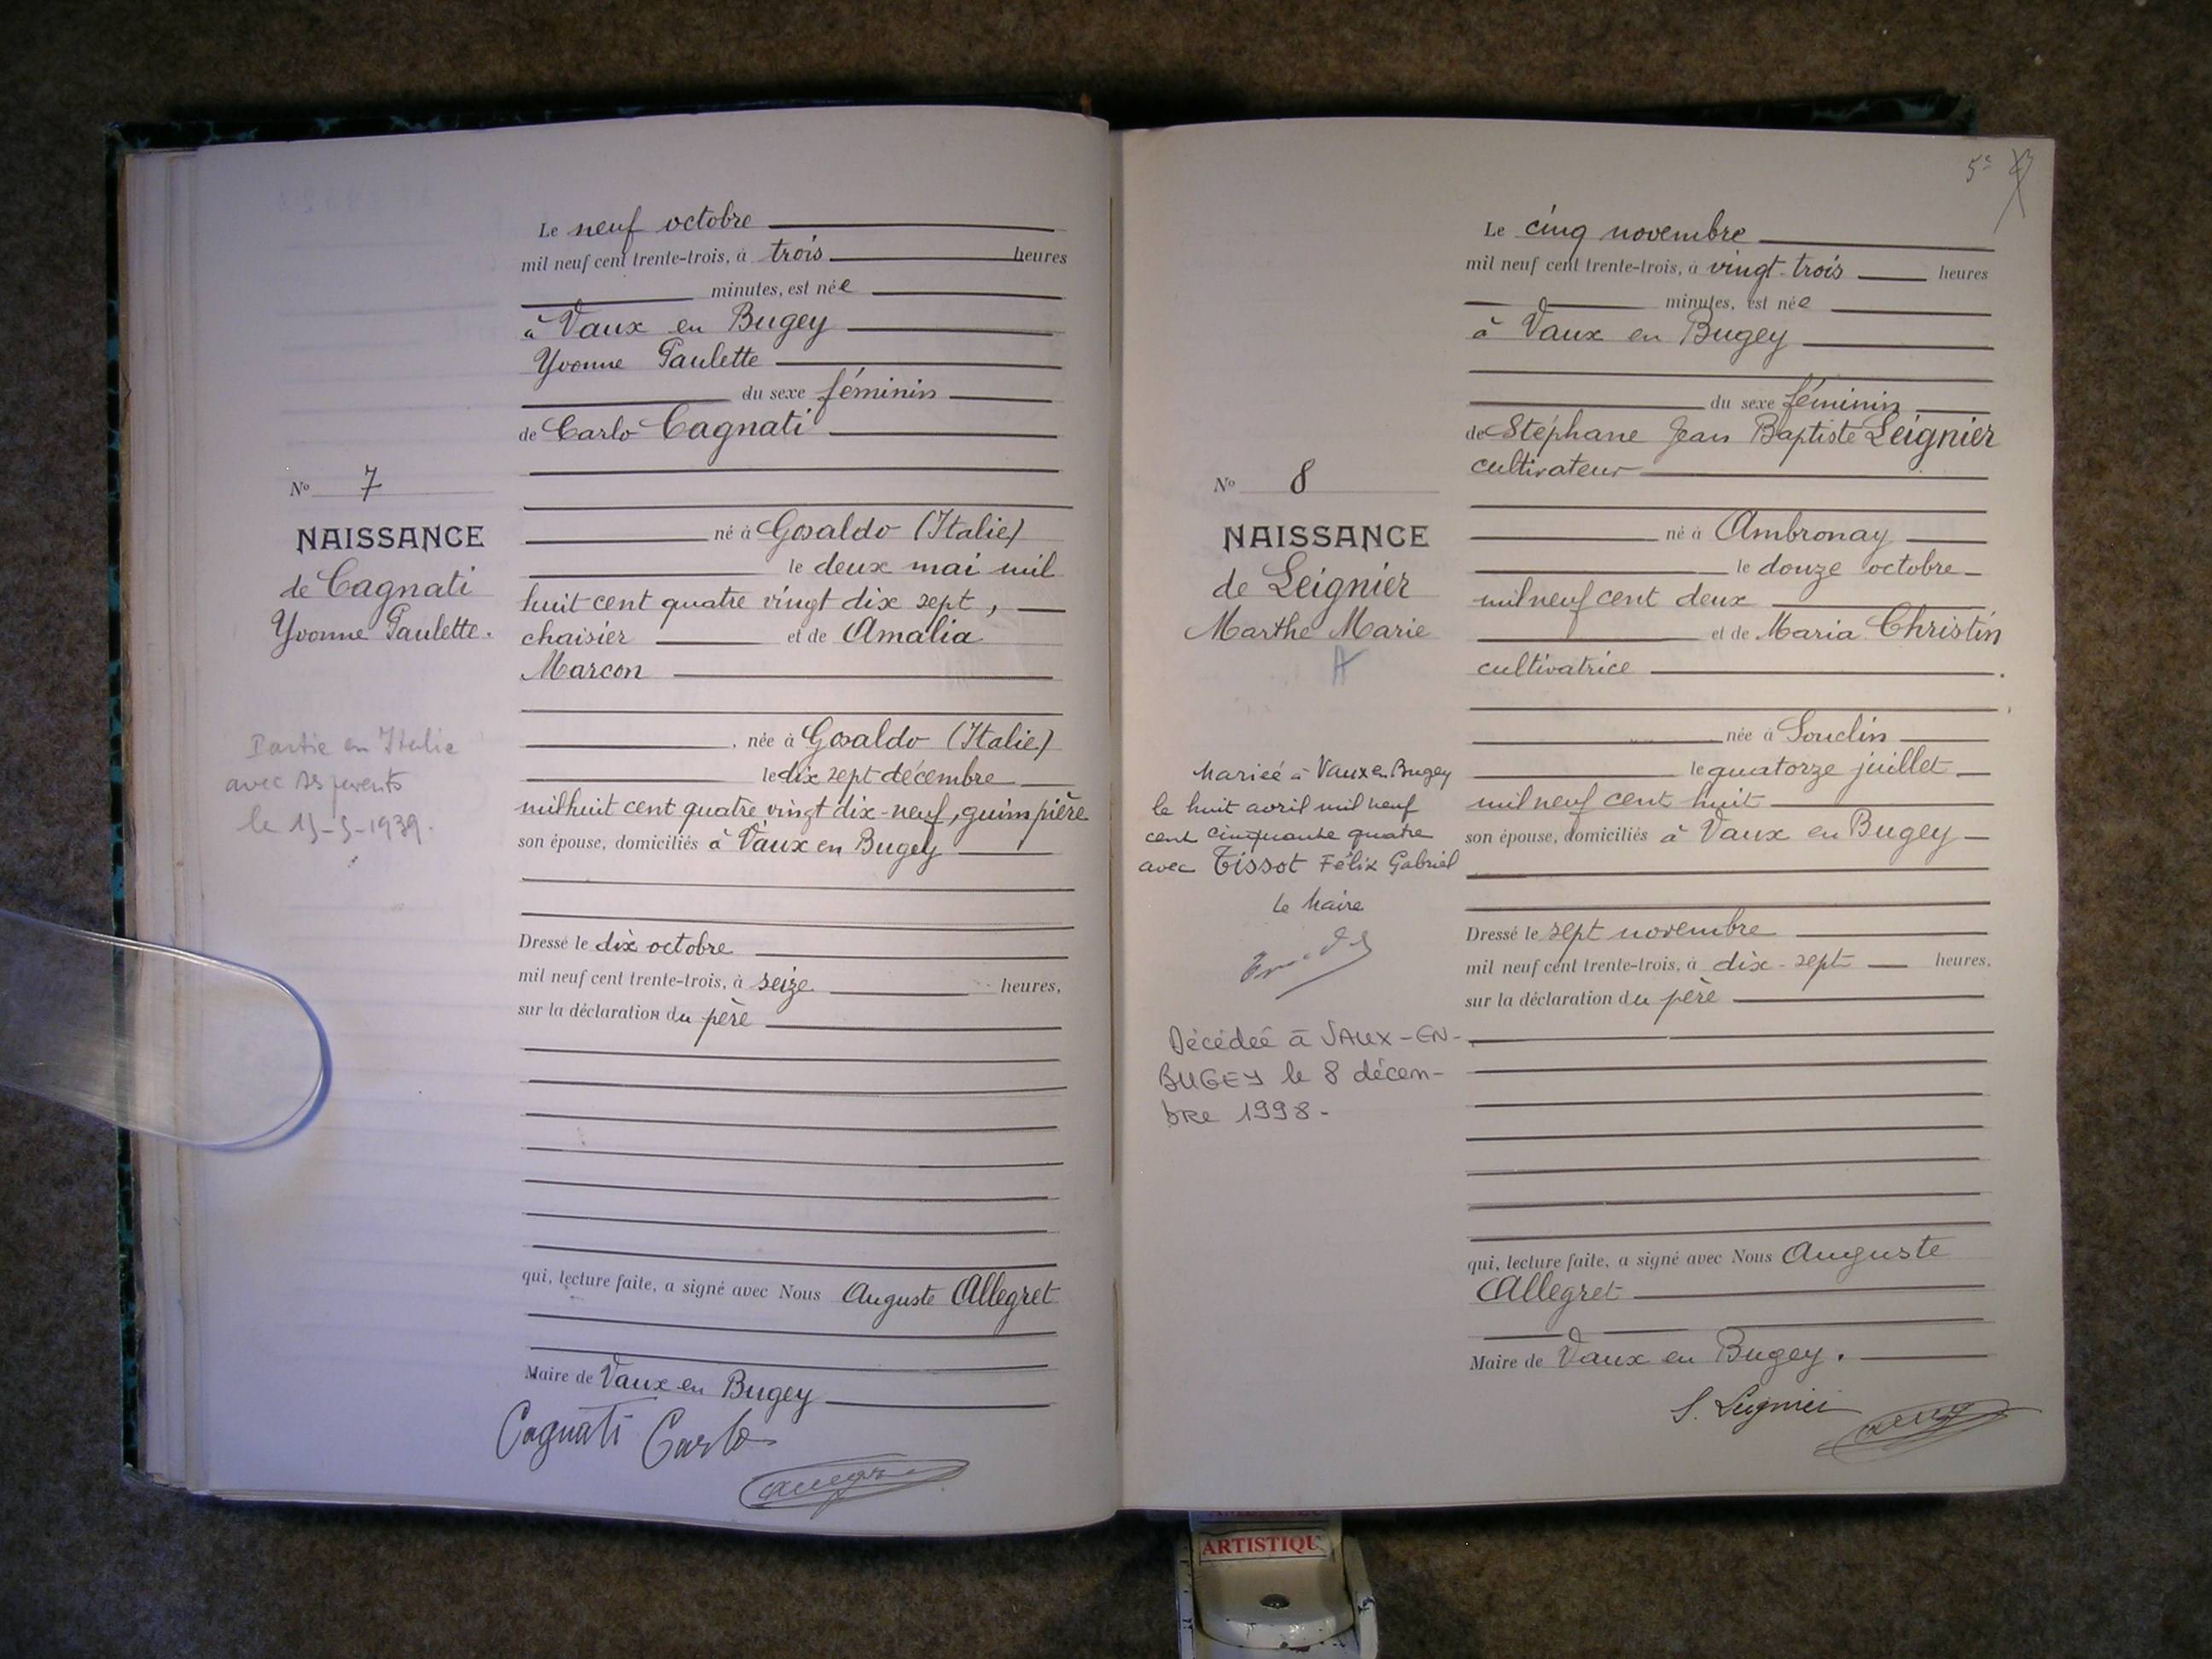 Le neuf octobre
mil neuf cent trente-trois, à trois heures
minutes, est née
à Vaux en Bugey
Yvonne Paulette
du sexe féminin
de Carlo Cagnati
N° 7
NAISSANCE
de Cagnati
Yvonne Paulette.
né à Gosaldo (Italie)
le deux mai mil
huit cent quatre vingt dix sept,
chaisier et de Amalia
Marcon
Partie en Italie
avec ses parents
le 15-5-1939.
, née à Gosaldo (Italie)
le dix sept décembre
mil huit cent quatre vingt dix-neuf, guimpière
son épouse, domiciliés à Vaux en Bugey
Dressé le dix octobre
mil neuf cent trente-trois, à seize heures,
sur la déclaration du père
qui, lecture faite, a signé avec Nous Auguste Allegret
Maire de Vaux en Bugey
Cagnati Carlo
5e
Le cinq novembre
mil neuf cent trente-trois, à vingt-trois heures
minutes, est née
à Vaux en Bugey
du sexe féminin
de Stéphane Jean Baptiste Leignier
cultivateur
N° 8
NAISSANCE
de Leignier
Marthe Marie
A
né à Ambronay
le douze octobre
mil neuf cent deux
et de Maria Christin
cultivatrice
née à Souclin
le quatorze juillet
mil neuf cent huit
son épouse, domiciliés à Vaux en Bugey
Mariée à Vaux en Bugey
le huit avril mil neuf
cent cinquante quatre
avec Tissot Félix Gabriel
Le Maire
Décédée à VAUX-EN-
BUGEY le 8 décem-
bre 1998-
Dressé le sept novembre
mil neuf cent trente-trois, à dix-sept heures,
sur la déclaration du père
qui, lecture faite, a signé avec Nous Auguste
Allegret
Maire de Vaux en Bugey.
S. Leignier
ARTISTIQU